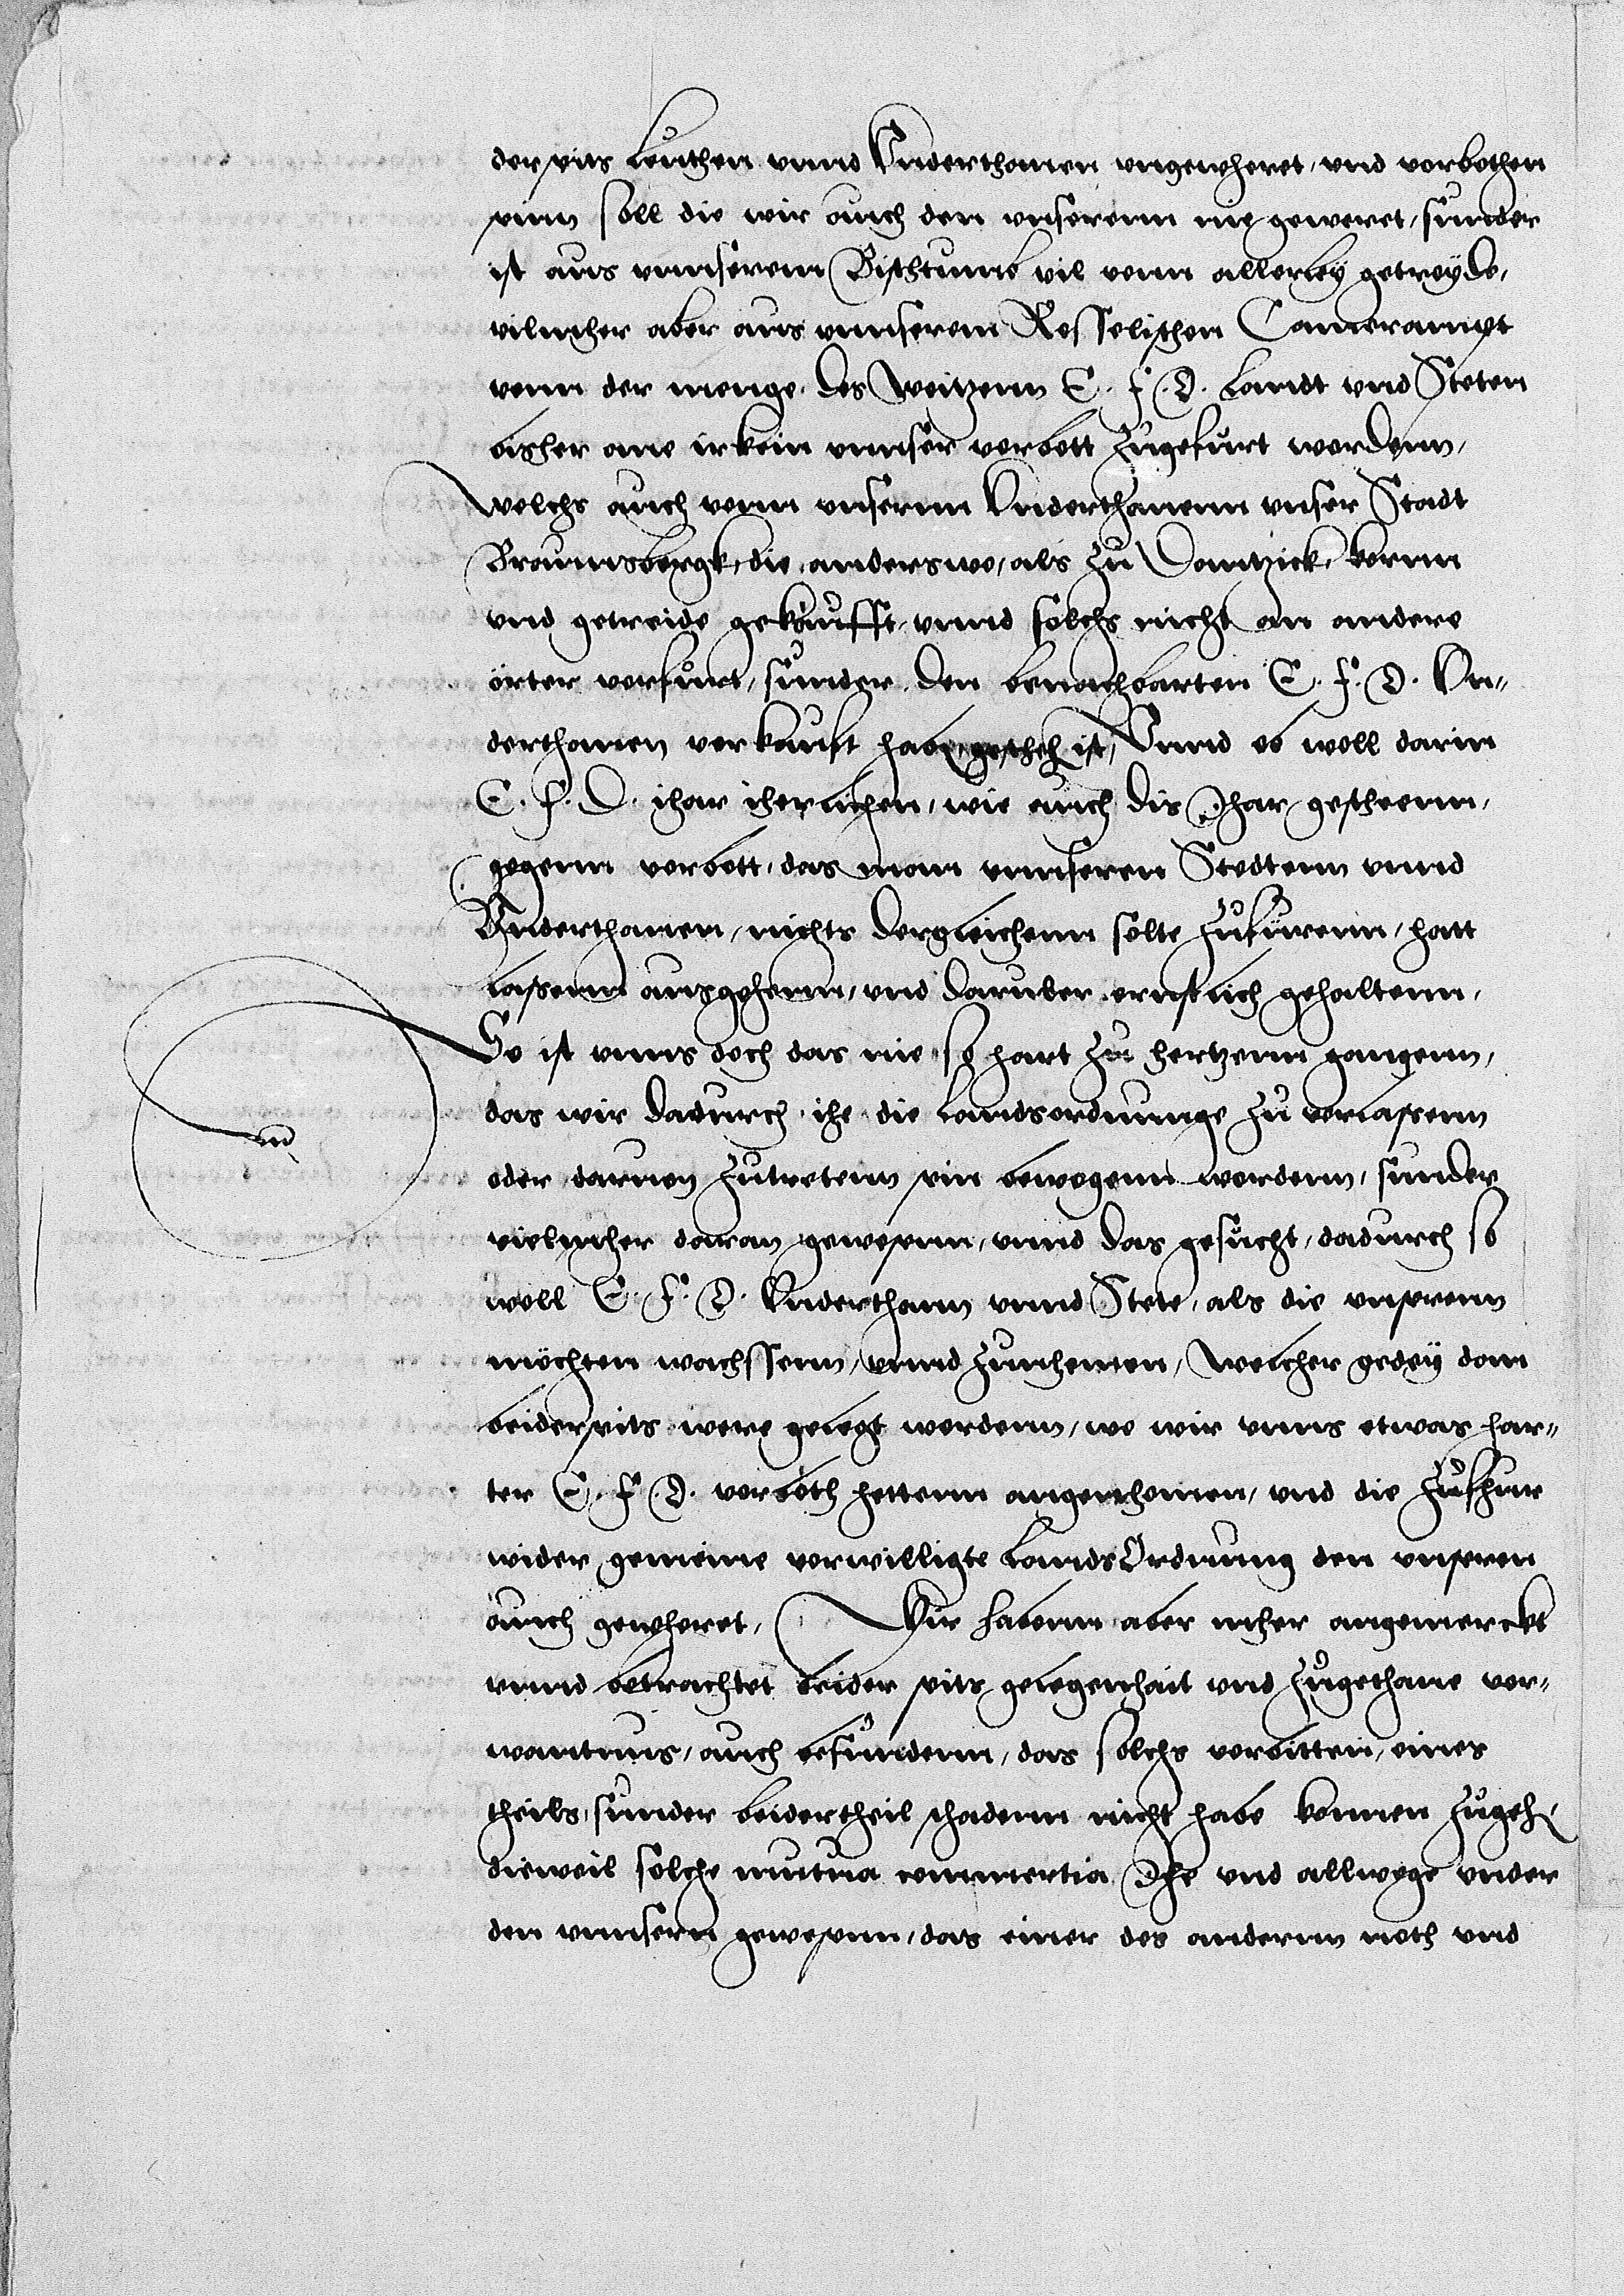 derseits leuthen vnnd Vnderthanen vngewheret, vnd vorbothen
sein soll die wir auch den vnserenn nie geweret, sunder
ist aus vnnserem Bischtumb vil venn allerley getreyde,
vilmher aber aus vnnserem Resselischen Camerampt
venn der menge des Weitzenn E. F. D. landt vnd Steten
bisher ane irkein vnnser vorbott zugefurt wordenn,
Welchs auch vonn vnsernn Vnderthanenn vnser Stadt
Braunsbergk, die anderswo, als zu Dantzick, kornn
vnd getreide gekaufft, vnnd solchs nicht an andere
örter vorfurt, sunder den benachbarten E. F. D. Vn-
derthanen verkauft habenn gescheh ist, Vnnd ob woll darin
E. F. D. ihar iherlichen, wie auch dis Jhar gescheenn,
gegenn vorbott, das man vnnseren Stedtenn vnnd
Vnderthanen, nichts dergleichenn solte zufurenn, hatt
lassenn ausgehenn, vnd daruber ernstlich gehaltenn,
So ist vnns doch das nie so hart zu hertzenn gangenn,
das wir dadurch ihe die landsordnunge zu verlassenn
oder daruon zutretenn sein bewogenn wordenn, sunder
vielmher daran gewesenn, vnnd das gesucht, dadurch so
woll E. F. D. Vnderthann vnnd Stete, als die vnserenn
möchten wachssenn, vnnd zunhemen, Welcher gedey dan
beiderseits were gelegt wordenn, wo wir vnns etwas har-
ter E. F. D. vorboth hettenn angenhomen, vnd die zufhur
wider gemeine vorwilligte landsOrdnung den vnseren
auch gewheret, Wir habenn aber mher angemerckt
vnnd betrachtet beider seits gelegenhait vnd zugethane vor-
wantnus, auch befundenn, das solchs vorbitten, eines
theils, sunder beidertheil schadenn nicht habe konnen zugeh,
dieweil solche mutua commertia Jhe vnd allwege vnder
den vnnsern gewesenn, das einer des andernn noth vnd